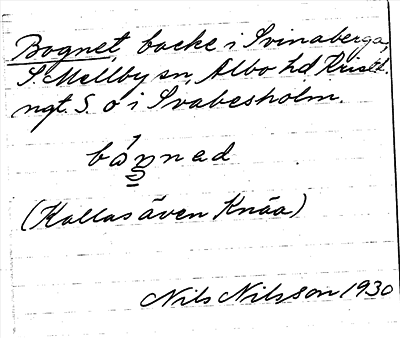 Bognet, backe i Svinaberga,
S. Mellby sn, Albo hd. Kristd.
ngt. S. o i Svabesholm.
(Kallas även Knäa)
Nils Nilsson 1930